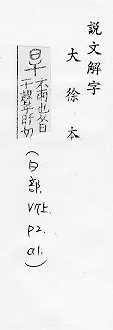 説文解字
大徐本
旱 不雨也从日
干聲乎旰切
(日部. V7上. P2. a1.)